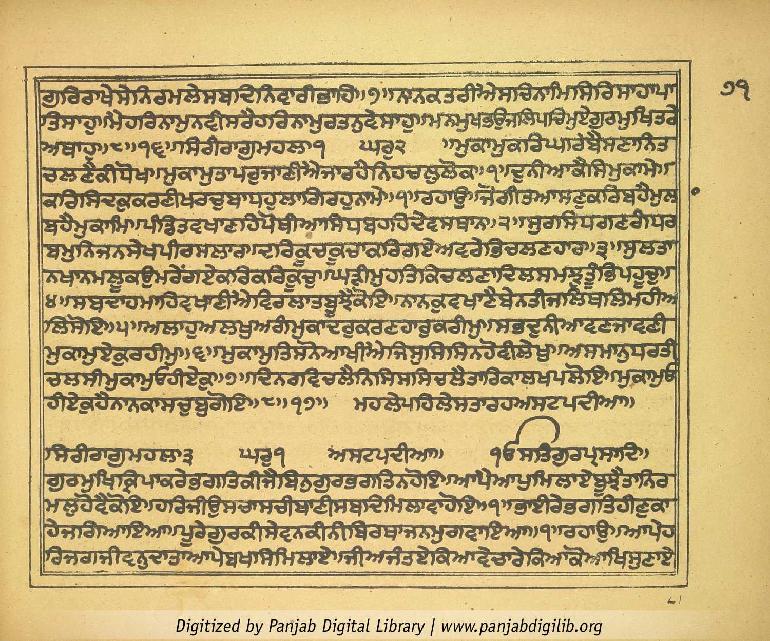 ਗੁਰਿਰਾਖੇਸੇਨਿਰਮਲੇਸਬਦਿਨਿਵਾਰੀਭਾਹਿ॥੭॥ਨਾਨਕਤਰੀਐਸਚਿਨਾਮਿਸਿਰਿਸਾਹਾਪਾ
ਤਿਸਾਹੁ॥ਮੈਹਰਿਨਾਮੁਨਵੀਸਰੈਹਰਿਨਾਮੁਰਤਨੁਵੇਸਾਹੁ॥ਮਨਮੁਖਭਉਜਲਿਪਚਿਮੁਏਗੁਰਮੁਖਿਤਰੇ
ਅਥਾਹੁ॥੮॥੧੬॥ਸਿਰੀਰਾਗੁਮਹਲਾ੧ ਘਰੁ੨ ॥ਮੁਕਾਮੁਕਰਿਘਰਿਬੈਸਣਾਨਿਤ
ਚਲਣੈਕੀਧੋਖ॥ਮੁਕਾਮੁਤਾਪਰੁਜਾਣੀਐਜਾਰਹੈਨਿਹਚਲੁਲੋਕ॥੧॥ਦੁਨੀਆਕੈਸਿਮੁਕਾਮੇ॥
ਕਰਿਸਿਦਕੁਕਰਣੀਖਰਚੁਬਾਧਹੁਲਾਗਿਰਹੁਨਾਮੇ॥੧॥ਰਹਾਉ॥ਜੋਗੀਤਆਸਣੁਕਰਿਬਹੈਮੁਲਾ
ਬਹੈਮੁਕਾਮਿ॥ਪੰਡਿਤਵਖਾਣਹਿਪੋਥੀਆਸਿਧਬਹਹਿਦੇਵਸਥਾਨਿ॥੨॥ਸੁਰਸਿਧਗਣਗੰਧਰ
ਬਮੁਨਿਜਨਸੇਖਪੀਰਸਲਾਰ॥ਦਰਿਕੂਚਕੂਚਾਕਰਿਗਏਅਵਰੇਭਿਚਲਣਹਾਰ॥੩॥ਸੁਲਤਾ
ਨਖਾਨਮਲੂਕਉਮਰੇਗਏਕਰਿਕਰਿਕੂਚੁ॥ਘੜੀਮੁਹਤਿਕਿਚਲਣਾਦਿਲਸਮਝੁਤੂੰਭਿਪਹੂਚੁ॥
੪॥ਸਬਦਾਹਮਾਹਿਵਖਾਣੀਐਵਿਰਲਾਤਬੂਝੈਕੋਇ॥ਨਾਨਕੁਵਖਾਣੈਬੇਨਤੀਜਲਿਥਲਿਮਹੀਅ
ਲਿਸੋਇ॥੫॥ਅਲਾਹੁਅਲਖੁਅਗੰਮੁਕਾਦਰੁਕਰਣਹਾਰੁਕਰੀਮੁ॥ਸਭਦੁਨੀਆਵਣਜਾਵਣੀ
ਮੁਕਾਮੁਏਕੁਰਹੀਮੁ॥੬॥ਮੁਕਾਮੁਤਿਸਨੋਆਖੀਐਜਿਸੁਸਿਸਿਨਹੋਵੀਲੇਖੁ॥ਅਸਮਾਨੁਧਰਤੀ
ਚਲਸੀਮੁਕਾਮੁਓਹੀਏਕੁ॥੭॥ਦਿਨਰਵਿਚਲੈਨਿਸਿਸਸਿਚਲੈਤਾਰਿਕਾਲਖਪਲੋਇ॥ਮੁਕਾਮੁਓ
ਹੀਏਕੁਹੈਨਾਨਕਾਸਚੁਬੁਗੋਇ॥੮॥੧੭॥ ਮਹਲੇਪਹਿਲੇਸਤਾਰਹਅਸਟਪਦੀਆ॥
ਸਿਰੀਰਾਗੁਮਹਲਾ੩ ਘਰੁ੧ ਅਸਟਪਦੀਆ॥ ੴਸਤਿਗੁਰਪ੍ਰਸਾਦਿ॥
ਗੁਰਮੁਖਿਕ੍ਰਿਪਾਕਰੇਭਗਤਿਕੀਜੈਬਿਨੁਗੁਰਭਗਤਿਨਹੋਇ॥ਆਪੈਆਪੁਮਿਲਾਏਬੂਝੈਤਾਨਿਰ
ਮਲੁਹੋਵੈਕੋਇ॥ਹਰਿਜੀਉਸਚਾਸਚੀਬਾਣੀਸਬਦਿਮਿਲਾਵਾਹੋਇ॥੧॥ਭਾਈਰੇਭਗਤਿਹੀਣੁਕਾ
ਹੇਜਗਿਆਇਆ॥ਪੂਰੇਗੁਰਕੀਸੇਵਨਕੀਨੀਬਿਰਥਾਜਨਮੁਗਵਾਇਆ॥੧॥ਰਹਾਉ॥ਆਪੇਹ
ਰਿਜਗਜੀਵਨੁਦਾਤਾਆਪੇਬਖਸਿਮਿਲਾਏ॥ਜੀਅਜੰਤਏਕਿਆਵੇਚਾਰੇਕਿਆਕੋਆਖਿਸੁਣਾਏ
੭੧
Digitized by Panjab Digital Library | www.panjabdigilib.org